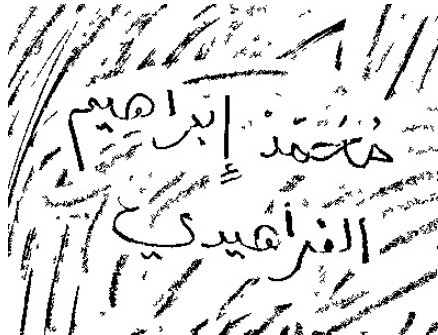 محمد إبراهيم
الفراهيدي